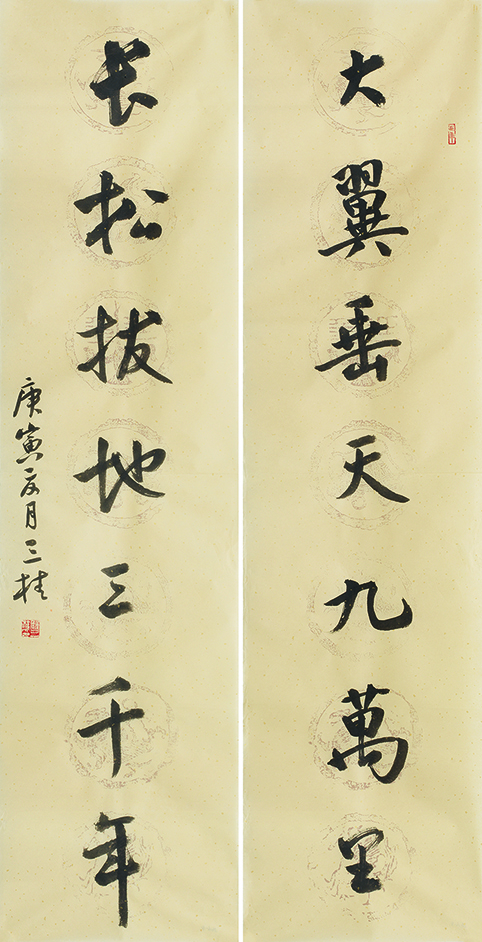 大翼垂天九萬里
长松拔地三千年
庚寅夏月三桂